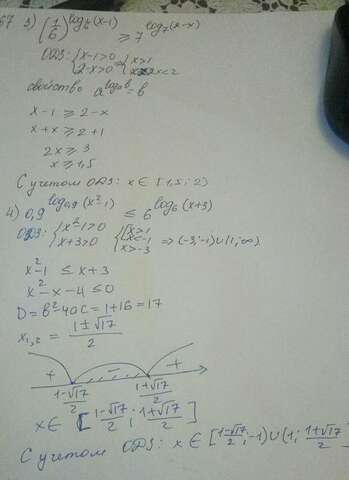 67 3) (1/6)^log_{1/6}(x-1) ≥ 7^log_7(2-x)
ОДЗ: {x-1>0 {2-x>0 ⇒ {x>1 {x<2
свойство a^log_a b = b
x-1 ≥ 2-x
x+x ≥ 2+1
2x ≥ 3
x ≥ 1,5
С учетом ОДЗ: x ∈ [1,5; 2)
4) 0,9^log_{0,9}(x²-1) ≤ 6^log_6(x+3)
ОДЗ: {x²-1>0 {x+3>0 {[x>1 [x<-1 {x>-3 ⇒ (-3;-1)∪(1;∞)
x²-1 ≤ x+3
x²-x-4 ≤ 0
D = b²-4ac = 1+16 = 17
x_{1,2} = (1±√17)/2
+ - +
(1-√17)/2 (1+√17)/2
x ∈ [(1-√17)/2; (1+√17)/2]
С учетом ОДЗ: x ∈ [(1-√17)/2; -1) ∪ (1; (1+√17)/2]